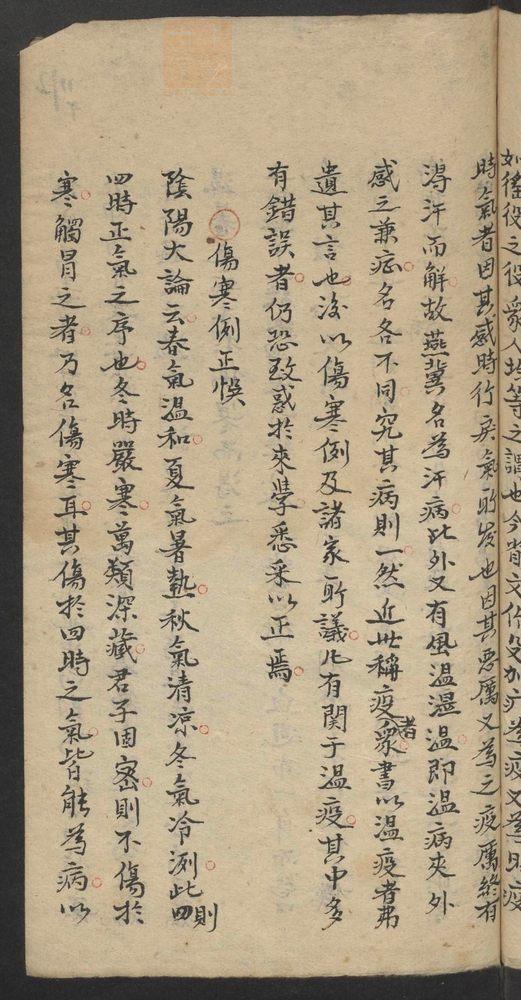 如徭役之役衆人均等之謂也今省文作殳加疒為疫又為時疫
時氣者因其感時行戾氣所發也因其惡厲又為之疫厲終有
淂汗而解故燕冀名為汗病此外又有風溫濕溫即溫病夾外
感之兼症名各不同究其病則一然近世稱疫者衆書以溫疫者弗
遺其言也後以傷寒例及諸家所議凡有関于溫疫其中多
有錯誤者仍恐致惑扵來學悉采以正焉
傷寒例正悞
陰陽大論云春氣溫和夏氣暑熱秋氣清凉冬氣冷冽此則
四時正氣之序也冬時嚴寒萬類深藏君子固密則不傷扵
寒觸冒之者乃名傷寒耳其傷扵四時之氣皆能為病以